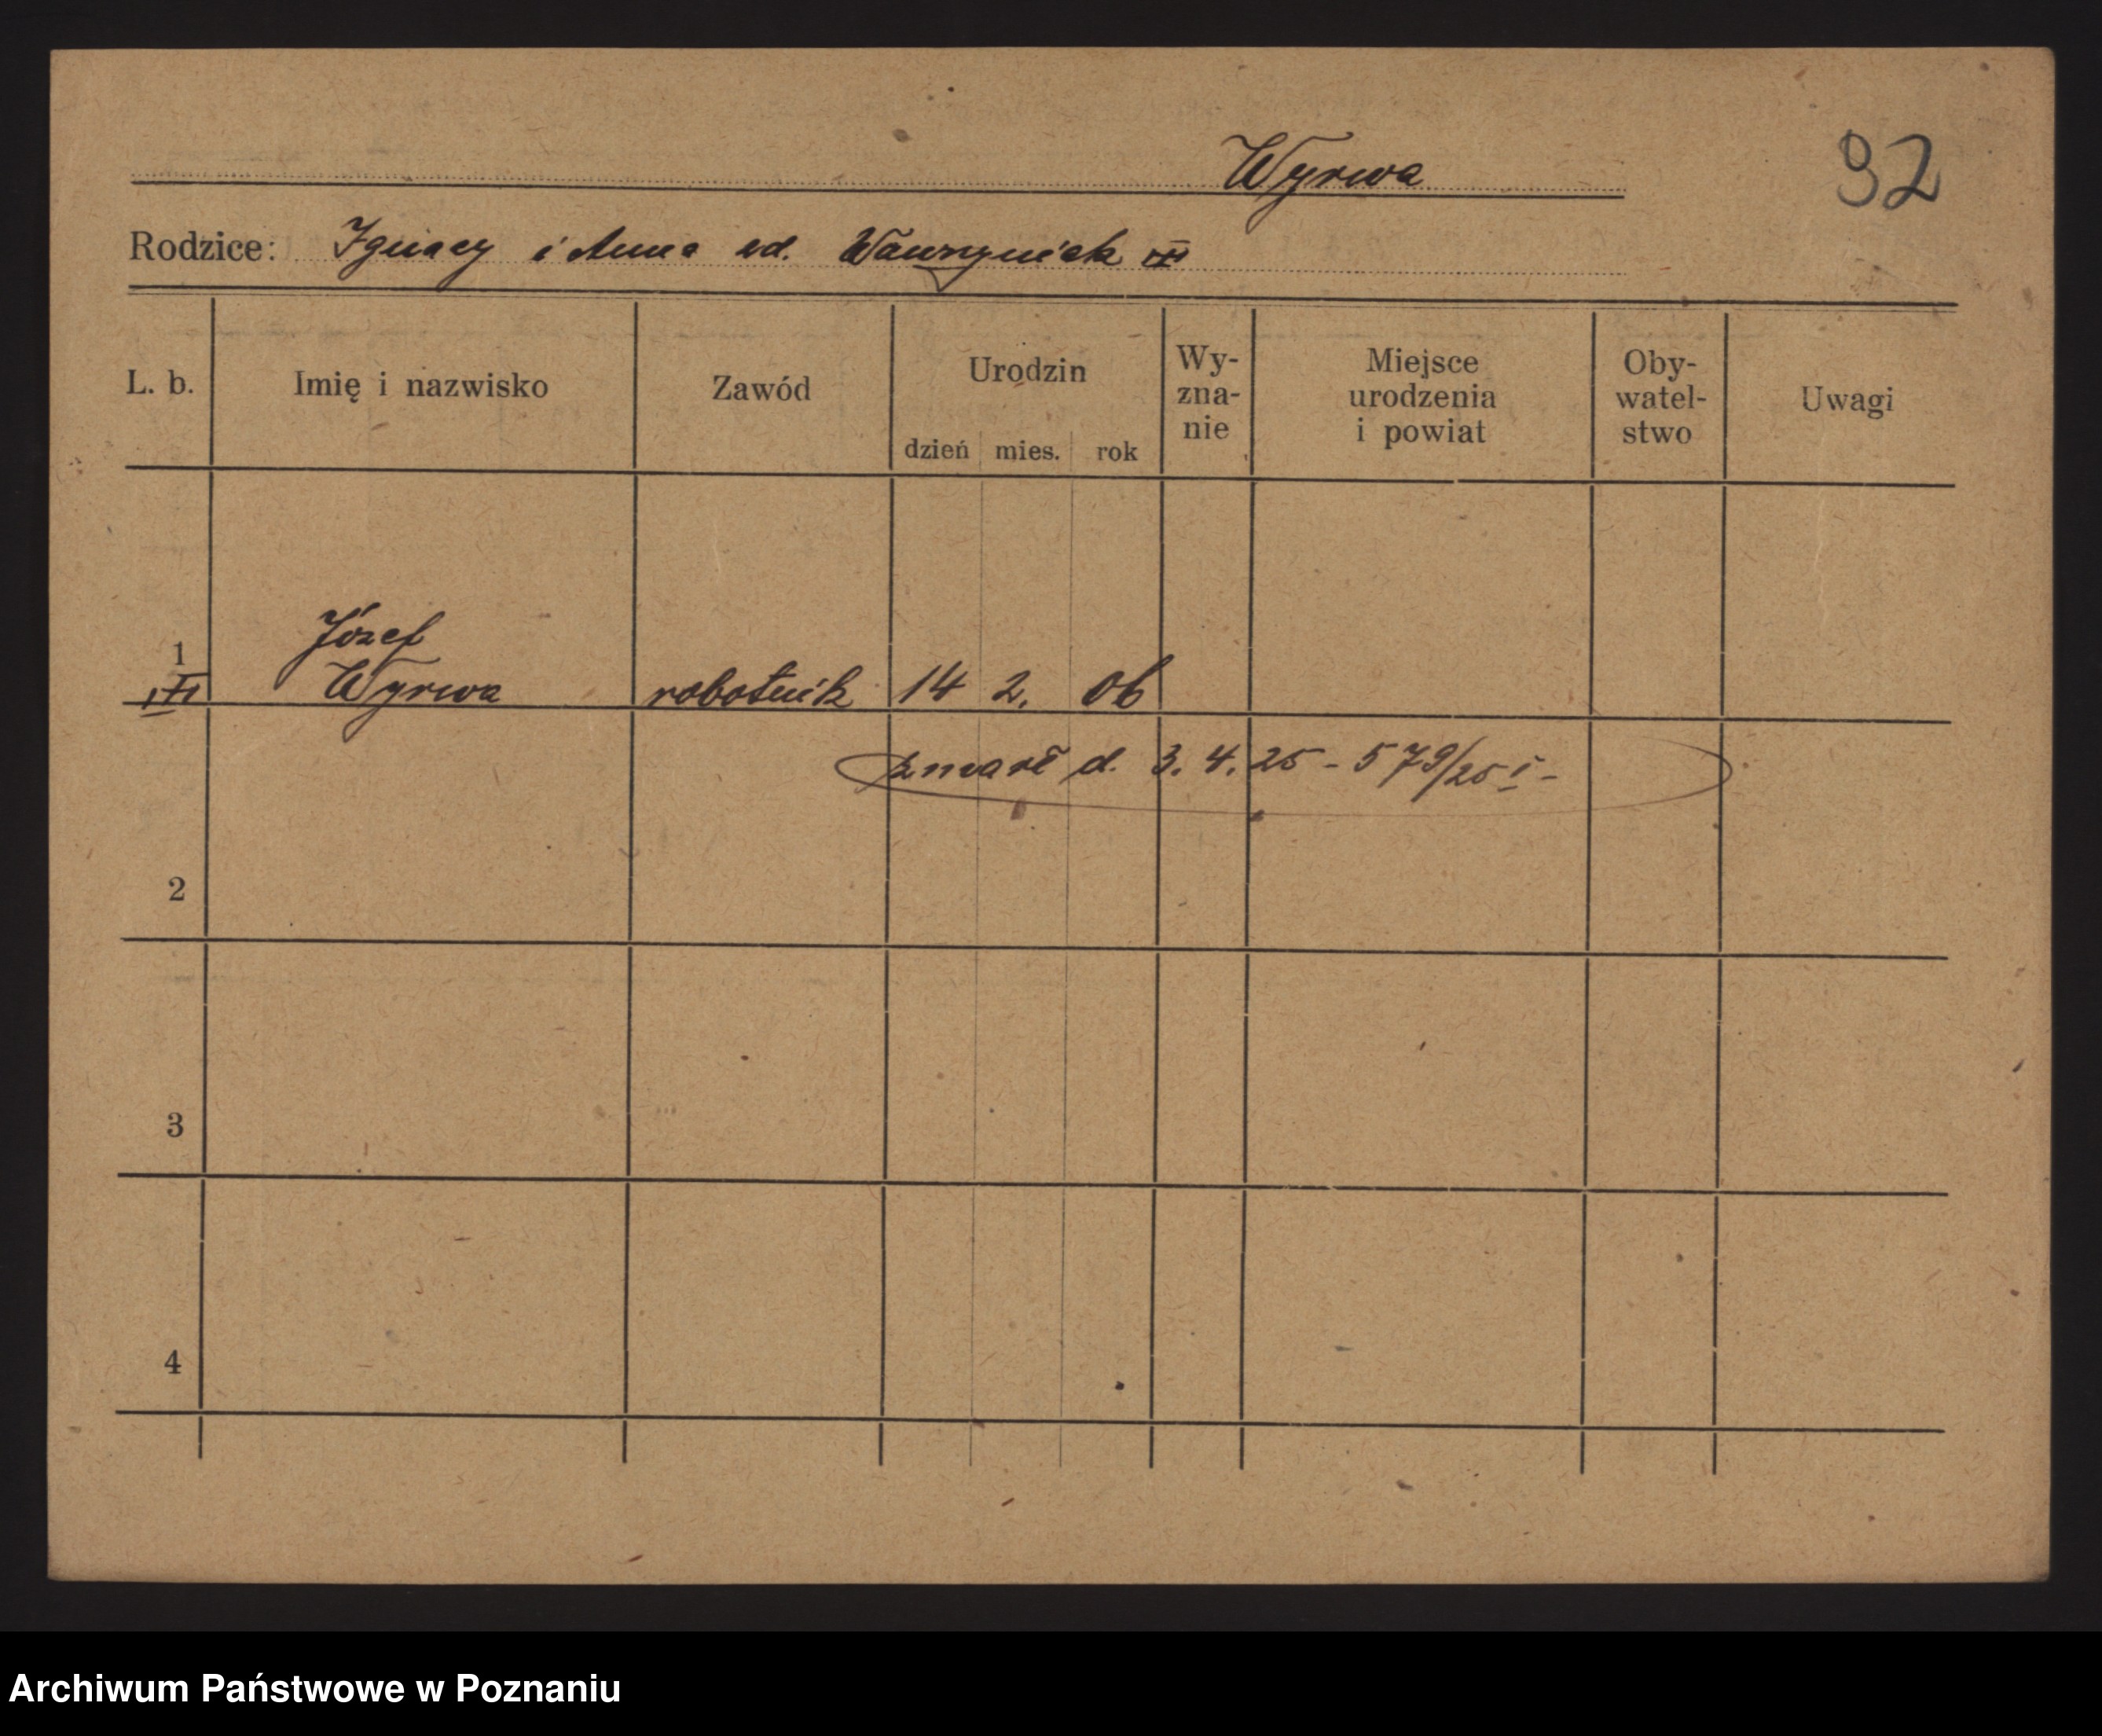 Wyrwa
92
Rodzice: Ignacy i Anna zd. Wawrzyniak III
L. b. Imię i nazwisko Zawód Urodzin dzień mies. rok Wy-zna-nie Miejsce urodzenia i powiat Oby-watel-stwo Uwagi
Józef
1 III Wyrwa robotnik 14 2. 06
zmarł d. 3. 4. 25 - 579/25 I -
2
3
4
Archiwum Państwowe w Poznaniu